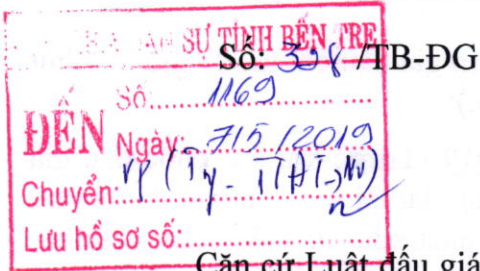 SỰ TỈNH BẾN TRE
Số: 398 /TB-ĐG
Số 1169
ĐẾN Ngày: 7/5/2019
Chuyển: VP
Lưu hồ sơ số:
Căn cứ Luật đấu giá